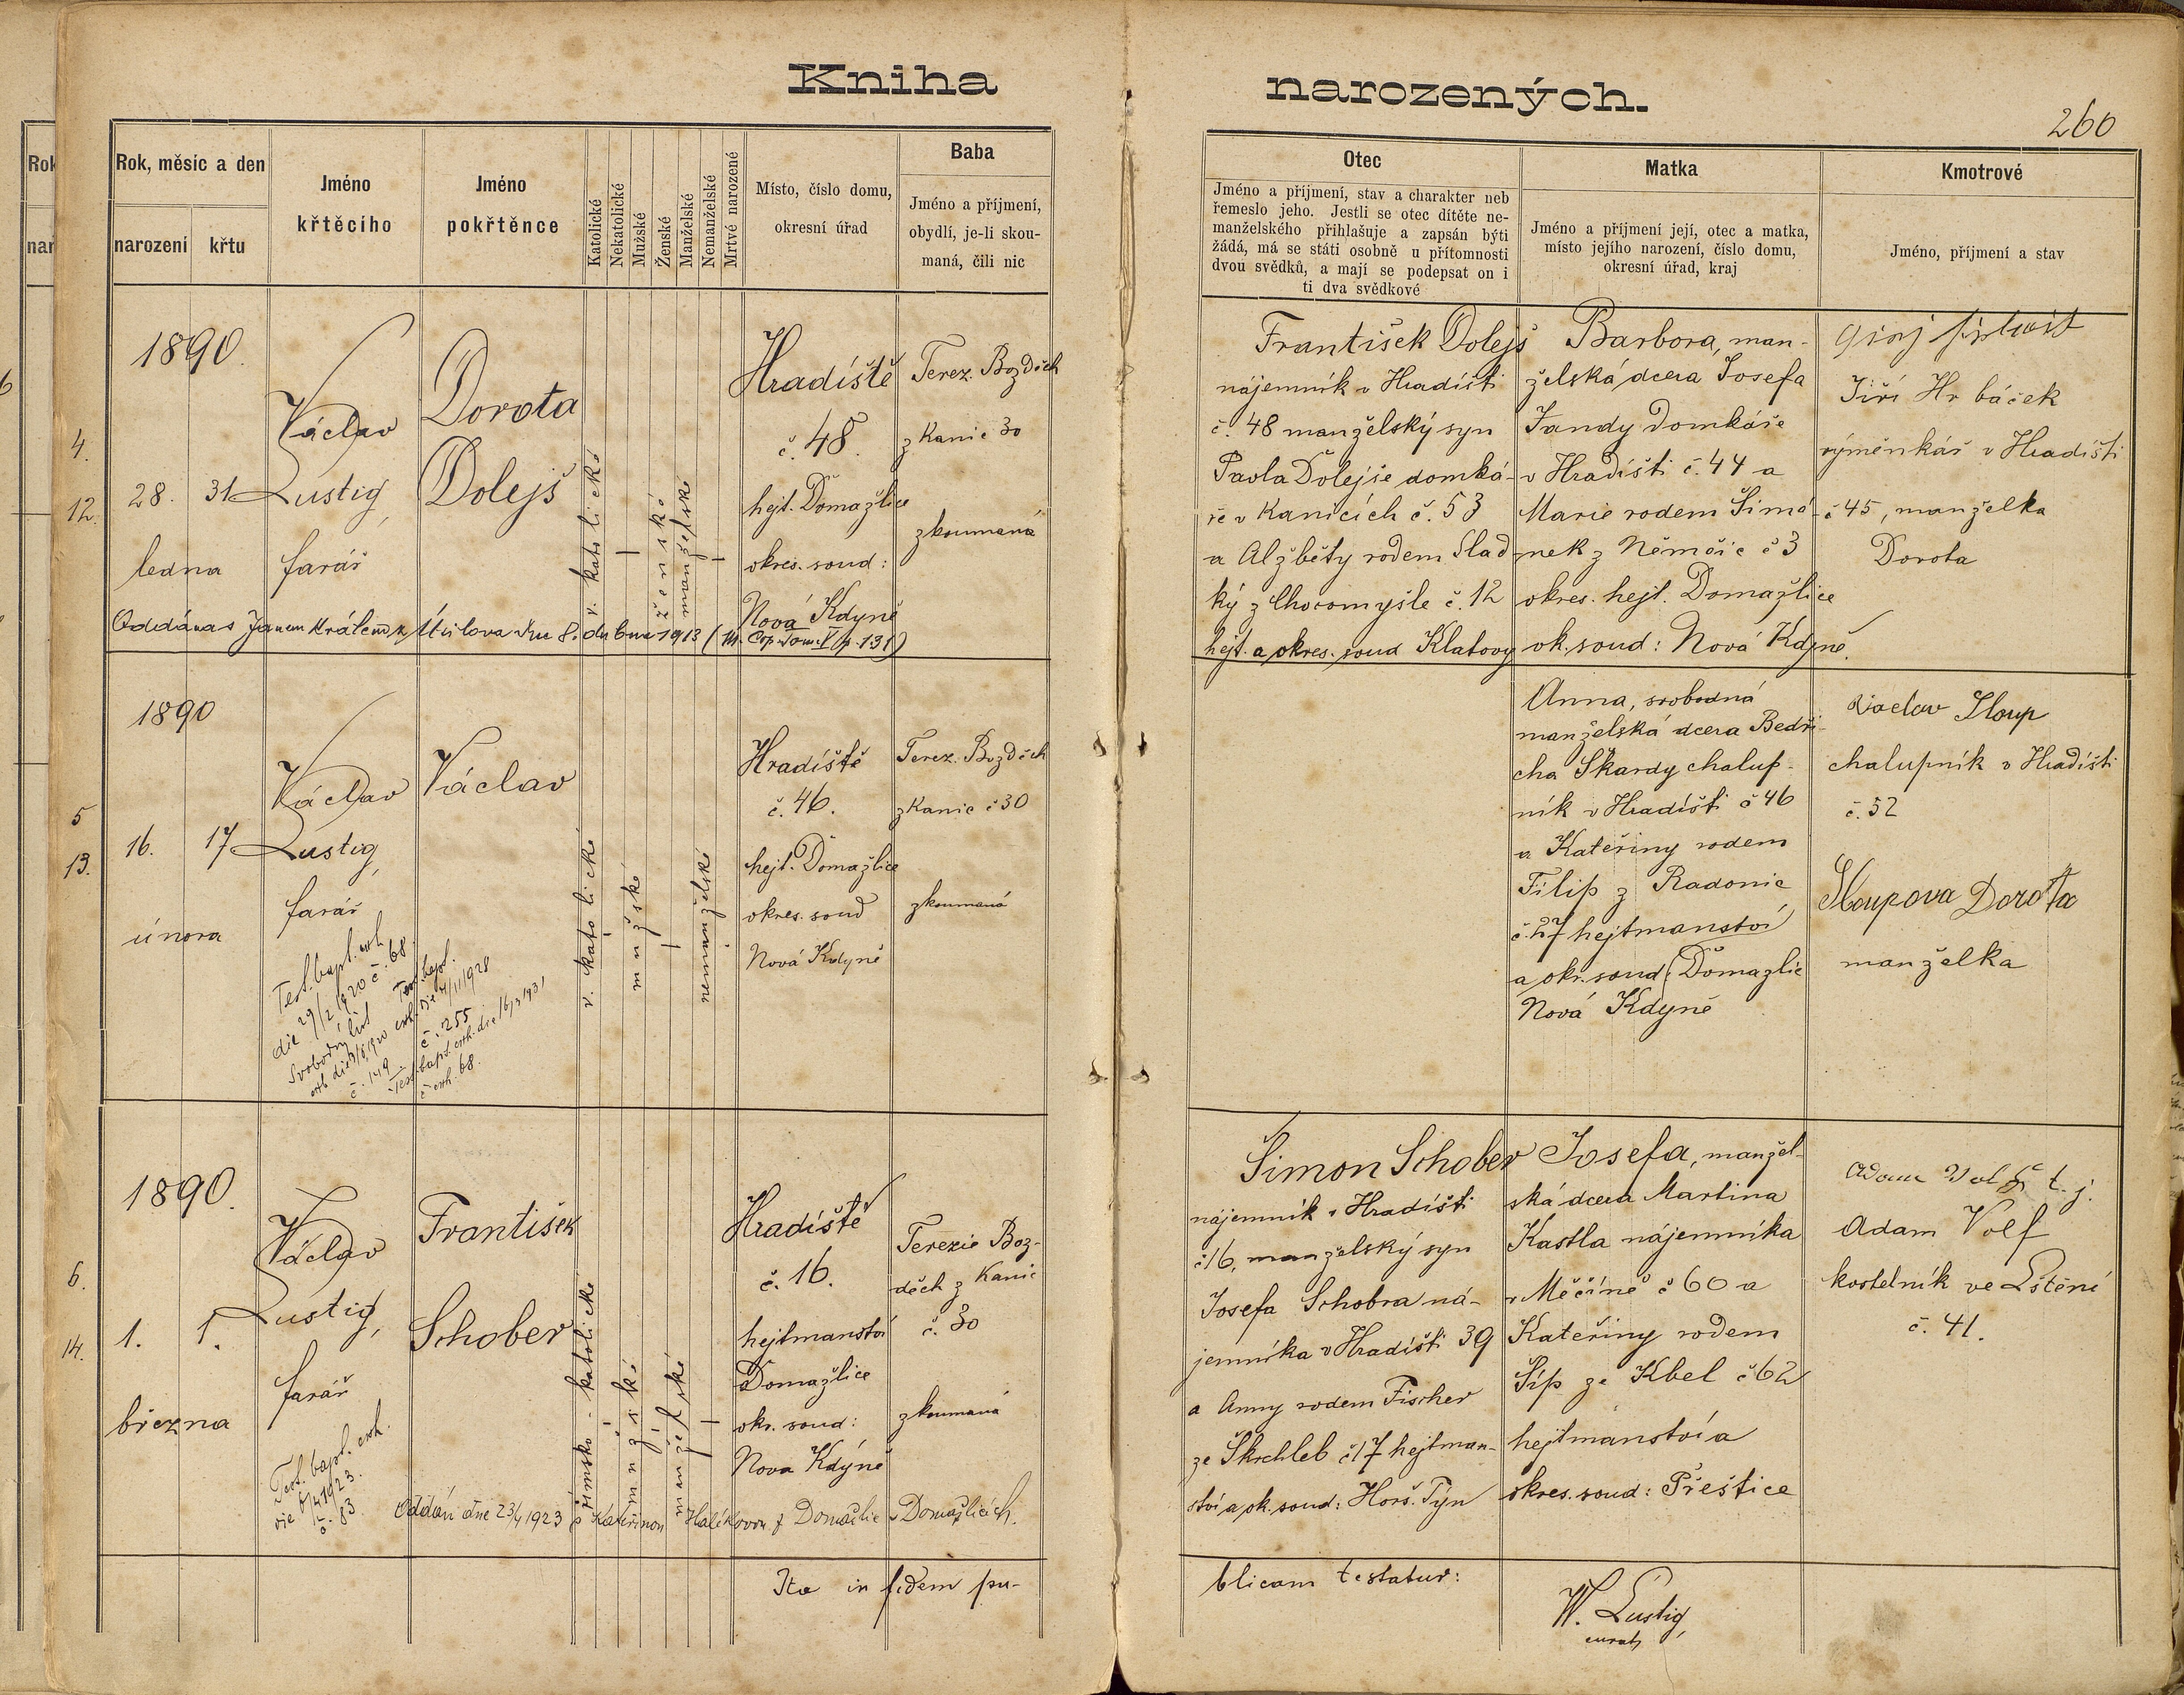 Kniha narozených.
260
Rok, měsíc a den
narození
křtu
Jméno
křtěcího
Jméno
pokřtěnce
Katolické
Nekatolické
Mužské
Ženské
Manželské
Nemanželské
Mrtvé narozené
Místo, číslo domu,
okresní úřad
Baba
Jméno a příjmení,
obydlí, je-li skou-
maná, čili nic
Otec
Jméno a příjmení, stav a charakter neb
řemeslo jeho. Jestli se otec dítěte ne-
manželského přihlašuje a zapsán býti
žádá, má se státi osobně u přítomnosti
dvou svědků, a mají se podepsat on i
ti dva svědkové
Matka
Jméno a příjmení její, otec a matka,
místo jejího narození, číslo domu,
okresní úřad, kraj
Kmotrové
Jméno, příjmení a stav
4.
12.
1890.
28. 31
ledna
Václav
Lustig,
farář
Dorota
Dolejš
ř. katolické
ženské
manželské
Hradiště
č. 48.
hejt. Domažlice
okres. soud:
Nová Kdyně
Terez. Bozděch
z Kanic 30
zkoumaná
František Dolejš
nájemník v Hradišti
č. 48 manželský syn
Pavla Dolejše domká-
ře v Kanicích č. 53
a Alžběty rodem Slad
ký z Chocomyšle č. 12
hejt. a okres. soud Klatovy
Barbora, man-
želská dcera Josefa
Jandy domkáře
v Hradišti č. 44 a
Marie rodem Šimá-
nek z Němčic č 3
okres. hejt. Domažlice
ok. soud: Nová Kdyně.
Jiří Hrbáček
výměnkář v Hradišti
č 45, manželka
Dorota
Oddána s Janem Králem z Úsilova dne 8. dubna 1913 (M. Cop. Tom. V p. 131)
5
13.
1890
16. 17
února
Václav
Lustig,
farář
Václav
ř. katolické
mužské
nemanželské
Hradiště
č. 46.
hejt. Domažlice
okres. soud
Nová Kdyně
Terez. Bozděch
z Kanic č 30
zkoumaná
Anna, svobodná
manželská dcera Bedři-
cha Škardy chalup-
ník v Hradišti č 46
a Kateřiny rodem
Filip z Radonic
č. 27 hejtmanství
a okr. soud (Domažlic
Nová Kdyně
Václav Sloup
chalupník v Hradišti
č. 52
Sloupova Dorota
manželka
Test. bapt. exh.
die 29/2 1920 č. 68.
Svobodný list
č. 149
Test. bapt.
exh. die 7/11 1928
č. 255
Test. bapt. exh. die 16/3 1931
č exh. 68.
6.
14.
1890.
1. 1.
března
Václav
Lustig,
farář
František
Schober
římsko-katolické
mužské
manželské
Hradiště
č. 16.
hejtmanství
Domažlice
okr. soud:
Nova Kdyně
Terezie Boz-
děch z Kanic
č. 30
zkoumaná
Šimon Schober
nájemník v Hradišti
č 16, manželský syn
Josefa Schobra ná-
jemníka v Hradišti 39
a Anny rodem Fischer
ze Škrchleb č 17 hejtman-
ství a ok. soud: Horš. Týn
Josefa, manžel-
ská dcera Martina
Kastla nájemníka
v Měčíně č 60 a
Kateřiny rodem
Šíp ze Kbel č 62
hejtmanství a
okres. soud: Přeštice
Adam Volf t. j.
Adam Volf
kostelník ve Lštění
č. 41.
Test. bapt. exh.
č. 83
Oddán dne 23/4 1923 s Kateřinou Halíkovou z Domažlic v Domažlicích.
Ita in fidem pu-
blicam testatur:
W. Lustig,
curat,